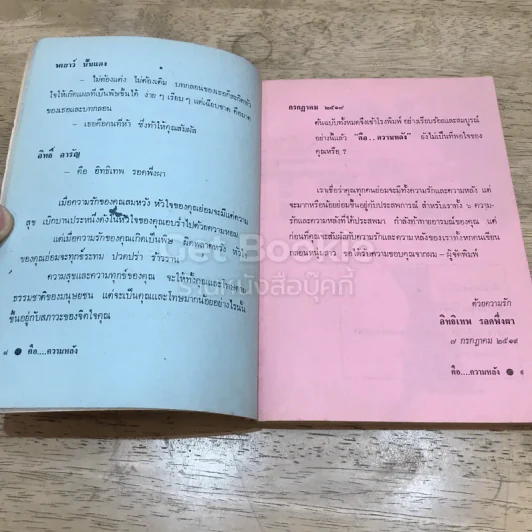 พเยาว์ นั้นแดง
– ไม่ต้องแต่ง ไม่ต้องเติม บทกลอนของเธอก็สะกิดหัว
ใจให้เกิดแผลที่เป็นพิษขึ้นได้ ง่าย ๆ เรียบ ๆ แต่เฉียบขาด คือมาด
ของเธอและบทกลอน
– เธอคือคนที่ห้า ซึ่งทำให้คุณสัมผัส
อิทธิ์ อารัญ
– คือ อิทธิเทพ รอดพึ่งผา
เมื่อความรักของคุณสมหวัง หัวใจของคุณย่อมจะมีแต่ความ
สุข เบิกบานประหนึ่งดังในหัวใจของคุณอบร่ำไปด้วยความหอม
แต่เมื่อความรักของคุณเกิดเป็นพิษ ผิดพลาดหวัง หัวใจ
ของคุณย่อมจะทุกข์ระทม ปวดปร่า ร้าวราน
ความสุขและความทุกข์ของคุณ จะให้ทั้งคุณและโทษตาม
ธรรมชาติของมนุษยชน แต่จะเป็นคุณและโทษมากน้อยอย่างไรนั้น
ขึ้นอยู่กับสภาวะของจิตใจคุณ
๘ ● คือ....ความหลัง
กรกฎาคม ๒๕๑๙
ต้นฉบับทั้งหมดจึงเข้าโรงพิมพ์ อย่างเรียบร้อยและสมบูรณ์
อย่างนี้แล้ว "คือ..ความหลัง" ยังไม่เป็นที่พอใจของ
คุณหรือ ?
เราเชื่อว่าคุณทุกคนย่อมจะมีทั้งความรักและความหลัง แต่
จะมากหรือน้อยย่อมขึ้นอยู่กับประสพการณ์ สำหรับเราทั้ง ๖ ความ-
รักและความหลังที่ได้ประสพมา กำลังท้าทายอารมณ์ของคุณ แต่
ก่อนที่คุณจะสัมผัสกับความรักและความหลังของเราทั้งหกคนเขียน
กลอนหนุ่มสาว ขอได้รับความขอบคุณจากผม – ผู้จัดพิมพ์
ด้วยความรัก
อิทธิเทพ รอดพึ่งผา
๗ กรกฎาคม ๒๕๑๙
คือ....ความหลัง ● ๙
Get Bookie
ร้านหนังสือบุ๊คกี้